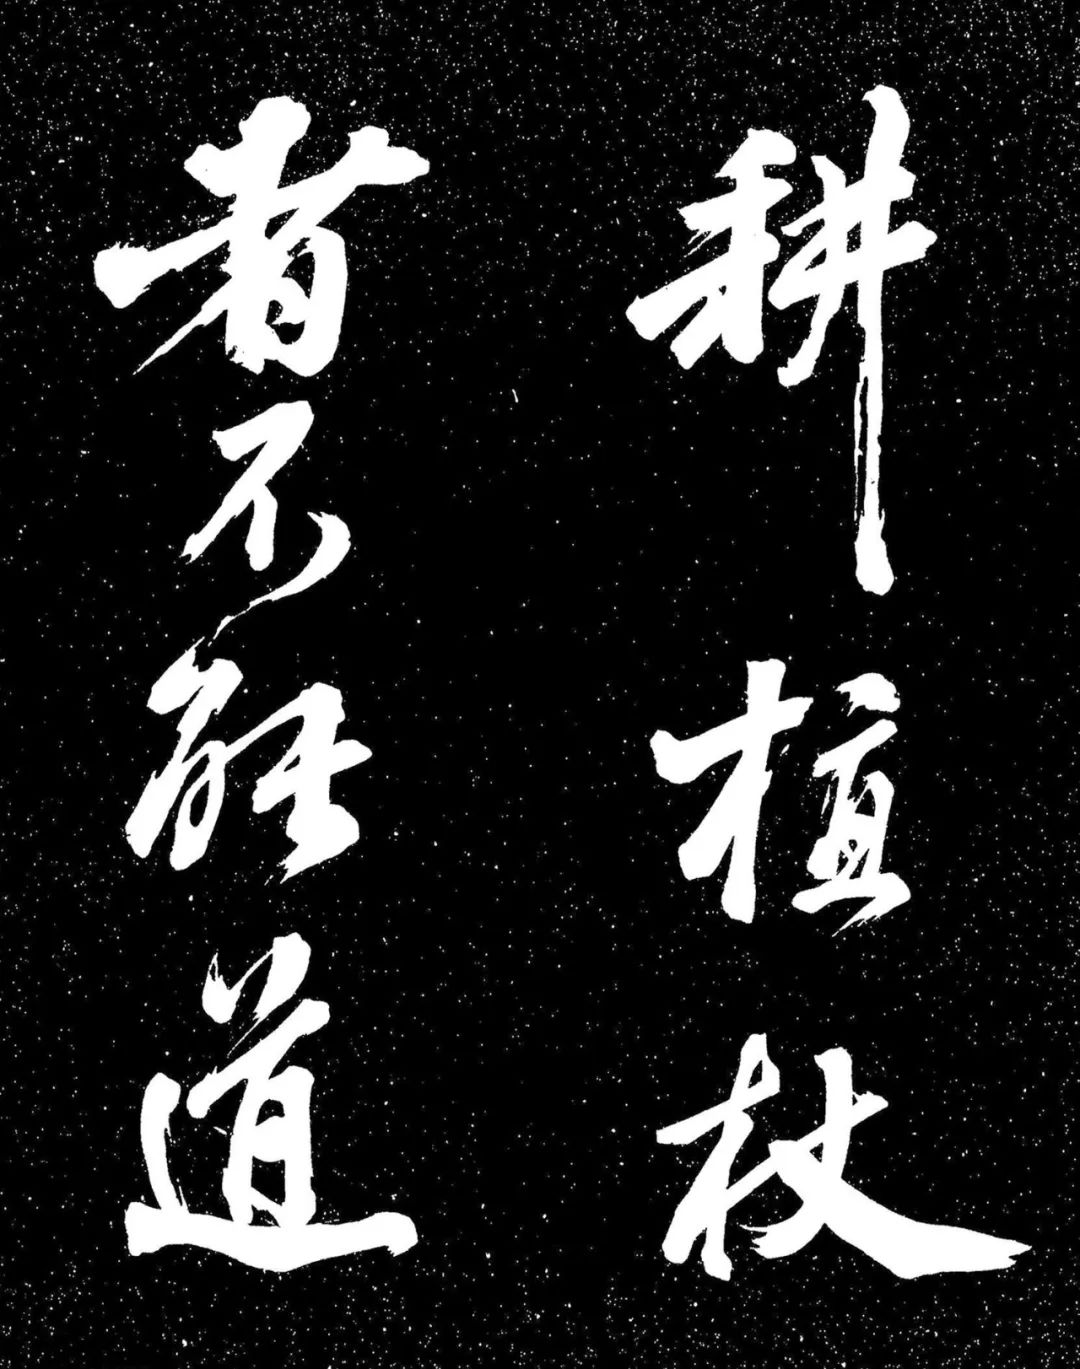 耕植杖
者不能道